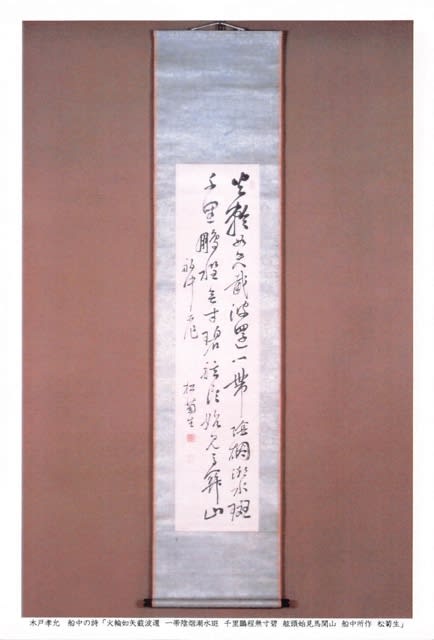 火輪如矢截波還一帯陰烟潮水斑
千里鵬程無寸碧舷頭始見馬関山
船中所作 松菊生
木戸孝允 船中の詩「火輪如矢截波還 一帯陰烟潮水斑 千里鵬程無寸碧 舷頭始見馬関山 船中所作 松菊生」